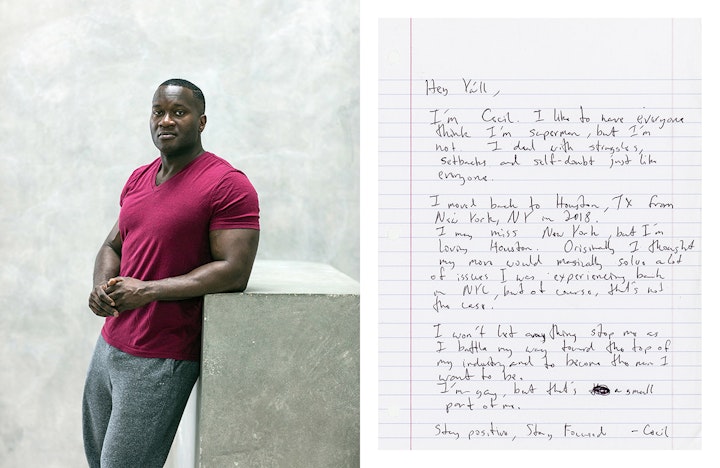 Hey Ya'll,
I'm Cecil. I like to have everyone
think I'm superman, but I'm
not. I deal with struggles,
setbacks and self-doubt just like
everyone.
I moved back to Houston, TX from
New York, NY in 2018.
I may miss New York, but I'm
loving Houston. Originally I thought
my move would magically solve a lot
of issues I was experiencing back
in NYC, but of course, that's not
the case.
I won't let anything stop me as
I battle my way toward the top of
my industry and to become the man I
want to be.
I'm gay, but that's a small
part of me.
Stay positive, Stay Focused - Cecil